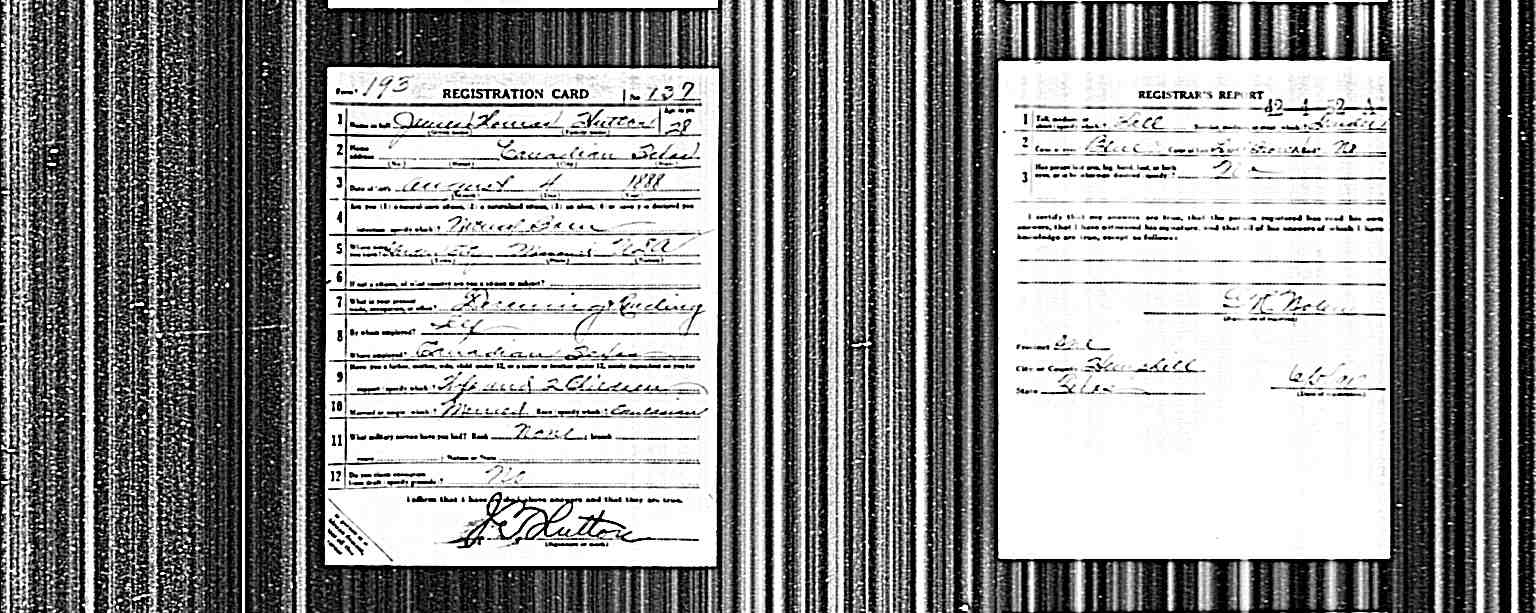 Form 1 193 REGISTRATION CARD No. 137
1 Name in full James Thomas Hutton Age in yrs. 28
(Given name) (Family name)
2 Home address Canadian Texas
(No.) (Street) (City) (State)
3 Date of birth August 4 1888
(Month) (Day) (Year)
Are you (1) a natural-born citizen, (2) a naturalized citizen, (3) an alien, (4) or have you declared your
4 intention (specify which)?
5 Where were you born? Missouri USA
(Town) (State) (Nation)
6 If not a citizen, of what country are you a citizen or subject?
7 What is your present trade, occupation, or office?
8 By whom employed? Self
Where employed? Canadian Texas
Have you a father, mother, wife, child under 12, or a sister or brother under 12, solely dependent on you for
9 support (specify which)? Wife and 2 Children
10 Married or single (which)? Married Race (specify which)? Caucasian
11 What military service have you had? Rank None ; branch
years ; Nation or State
12 Do you claim exemption from draft (specify grounds)? No
I affirm that I have above answers and that they are true.
J T Hutton
(Signature or mark)
REGISTRAR'S REPORT
42 4 32 A
1 Tall, medium, or short (specify which)? Tall Slender, medium, or stout (which)? Slender
2 Color of eyes Blue Color of hair Brown No
3 Has person lost arm, leg, hand, foot, or both eyes, or is he otherwise disabled (specify)? No
I certify that my answers are true, that the person registered has read his own
answers, that I have witnessed his signature, and that all of his answers of which I have
knowledge are true, except as follows:
(Signature of registrar)
Precinct One
City or County Hemphill
State Texas
(Date of registration)